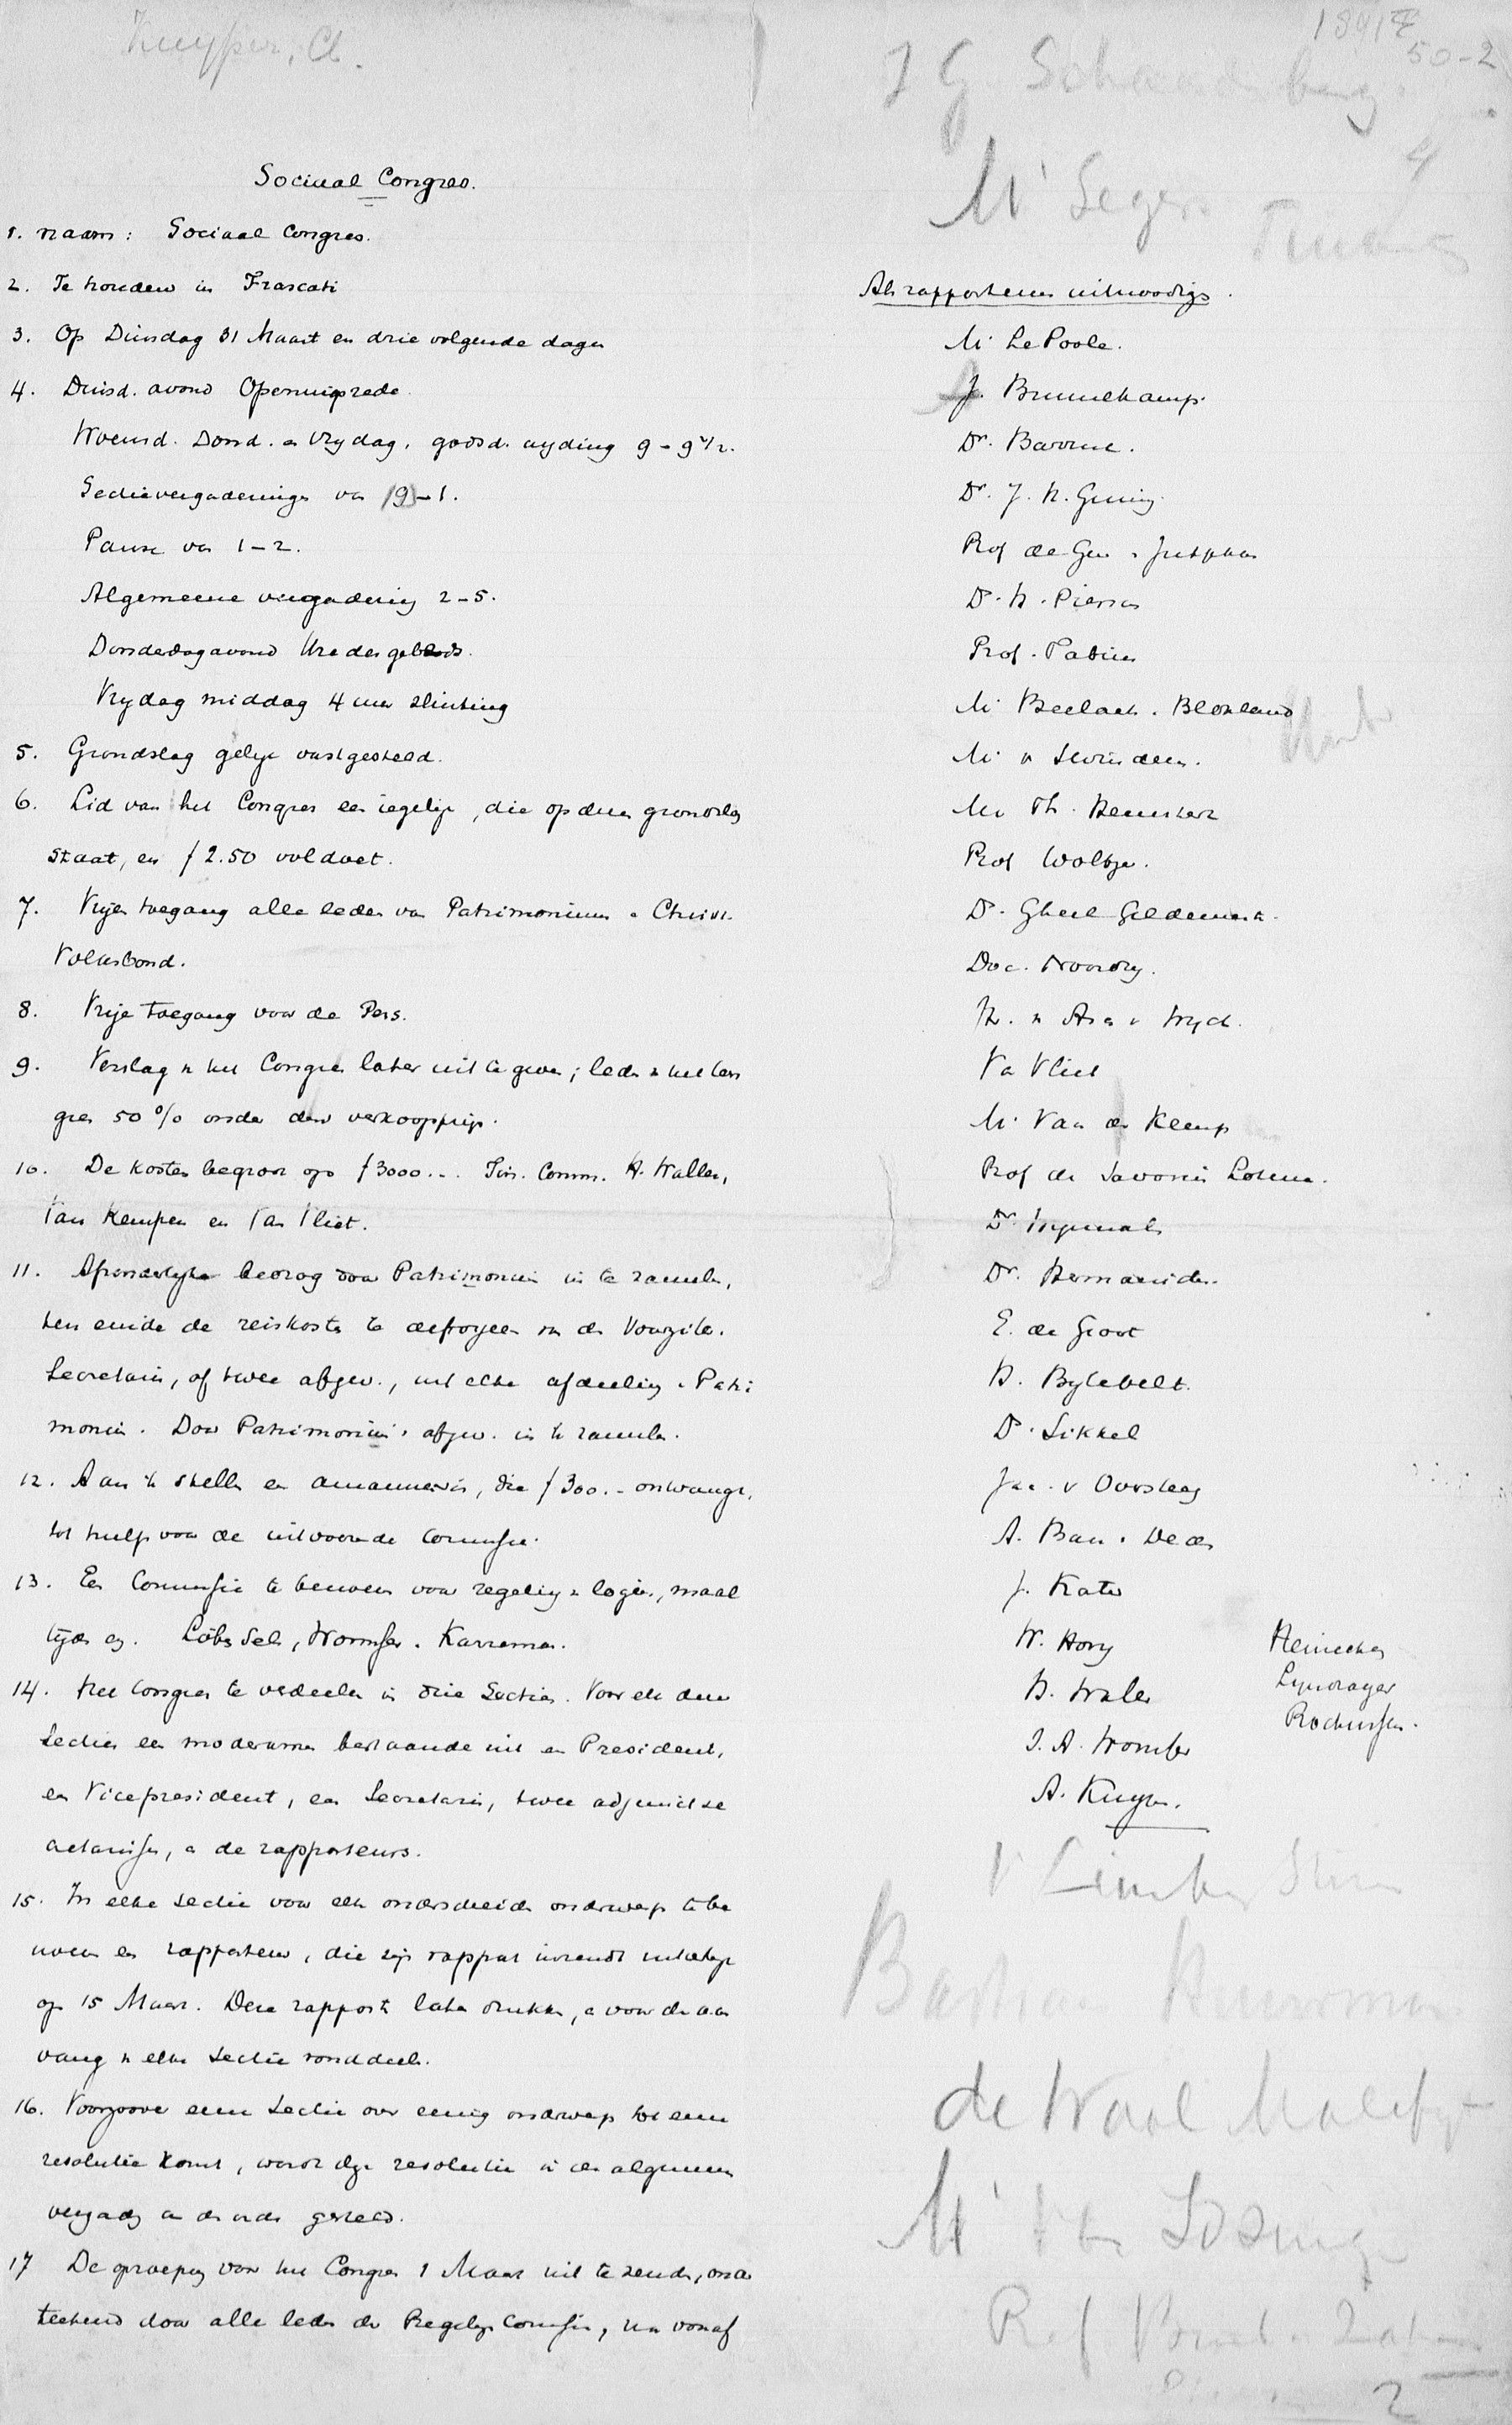 Kuyper, A.
Sociaal Congres.
1. naam: Sociaal Congres.
2. Te houden in Frascati
3. Op Dinsdag 31 Maart en drie volgende dagen
4. Dinsd. avond Openingsrede.
Woensd. Dond. en Vrydag. godsd. wyding 9-9 1/2.
Sectievergaderingen van 9-1.
Pauze van 1-2.
Algemeene vergadering 2-5.
Donderdagavond Ure des gebeds.
Vrydag middag 4 uur sluiting
5. Grondslag gelyk vastgesteld.
6. Lid van het Congres een iegelijk, die op dien grondslag
staat, en f 2.50 voldoet.
7. Vryen toegang alle leden van Patrimonium en Christ.
Volksbond.
8. Vrije toegang voor de Pers.
9. Verslag v het Congres later uit te geven; leden v het Con
gres 50 % onder den verkoopprijs.
10. De kosten begroot op f 3000.-. Fin. Comm. H. Waller,
Van Kempen en Van Vliet.
11. Afzonderlyke bedrag door Patrimonium in te zamelen,
ten einde de reiskosten te defroyeeren van den Voorzitter.
Secretaris, of twee afgev., uit elke afdeeling v Patri
monium. Door Patrimonium's afgev. in te zamelen.
12. Aan te stellen een amanuensis, die f 300.- ontvangt,
tot hulp voor de uitvoerende Commissie.
13. Een Commissie te benoemen voor regeling v logies, maal
tyden en. Löbs Sels, Wormser. Karreman.
14. Het Congres te verdeelen in drie Secties. Voor elk dezer
secties een moderamen bestaande uit een President,
een Vicepresident, een Secretaris, twee adjunct se
cretarissen, en de rapporteurs.
15. In elke sectie voor elk onderscheiden onderwerp te be
noemen een rapporteur, die zijn rapport inzendt uiterlijk
op 15 Maart. Deze rapporten laten drukken, en voor den aan
vang v elke sectie ronddeelen.
16. Voorzoover eene sectie over eenig onderwerp tot eene
resolutie komt, wordt deze resolutie in de algemeene
vergadg aan de orde gesteld.
17 De oproeping voor het Congres 1 Maart uit te zenden, onder
teekend door alle leden der Regelings Commissie, na vooraf
50-2
J G Schaadenberg
4
Mr Segers
Als rapporteurs uitnoodigen.
Mr Le Poole.
J. Brummelkamp.
Dr. Bavinck.
Dr. J. H. Gunning
Prof de Geer v Jutphaas
Dr. H. Pierson
Prof. Fabius
Mr Beelaerts v. Blokland
Mr v Swinderen.
Mr Th. Heemskerk
Prof Woltjer.
Dr. Gheel Gildemeester.
Doc. Noordtzy.
H. v Asch v Wyck.
Van Vliet
Mr Van der Kemp
Prof de Savornin Lohman.
Dr. Wagenaar
Dr. Hermanides.
E. de Groot
H. Bylevelt.
Ds. Sikkel
Jac. v Oversteeg
A. Baas
J. Kater
W. Hovy
H. Waller
J. A. Wormser
A. Kuyper.
Heinecken
Rochussen.
v Limburg Stirum
Bastiaan Huurman
de Waal Malefyt
Mr
Prof
2